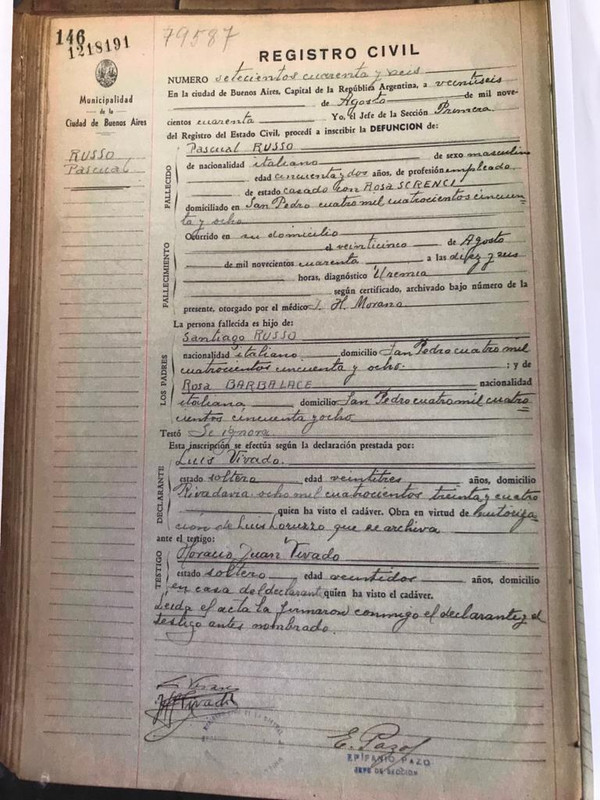 146
1218191
79587
REGISTRO CIVIL
Municipalidad
de la
Ciudad de Buenos Aires
RUSSO
Pascual
NUMERO setecientos cuarenta y seis
En la ciudad de Buenos Aires, Capital de la República Argentina, a veintiseis
de Agosto de mil nove-
cientos cuarenta Yo, el Jefe de la Sección Primera
del Registro del Estado Civil, procedí a inscribir la DEFUNCION de:
FALLECIDO
Pascual RUSSO
de nacionalidad italiano de sexo masculino
edad cincuenta y dos años, de profesión empleado
de estado casado con Rosa SCRENCI
domiciliado en San Pedro cuatro mil cuatrocientos cincuen-
ta y ocho
FALLECIMIENTO
Ocurrido en su domicilio
el veinticinco de Agosto
de mil novecientos cuarenta a las diez y seis
horas, diagnóstico Uremia
según certificado, archivado bajo número de la
presente, otorgado por el médico J. H. Morano
La persona fallecida es hijo de:
LOS PADRES
Santiago RUSSO
nacionalidad italiano domicilio San Pedro cuatro mil
cuatrocientos cincuenta y ocho. ; y de
Rosa BARBALACE nacionalidad
italiana domicilio San Pedro cuatro mil cuatro
cientos cincuenta y ocho
Testó Se ignora
Esta inscripción se efectúa según la declaración prestada por:
DECLARANTE
Luis Vivado.
estado soltero edad veintitres años, domicilio
Rivadavia ocho mil cuatrocientos treinta y cuatro
quien ha visto el cadáver. Obra en virtud de autoriza-
ción de Luis Loruzzo que se archiva
ante el testigo:
TESTIGO
Horacio Juan Vivado
estado soltero edad veintidos años, domicilio
en casa del declarante quien ha visto el cadáver.
Leida el acta la firmaron conmigo el declarante y el
testigo antes nombrado.
L. Vivado
Vivado
E. Pazo
EPIFANIO PAZO
JEFE DE SECCION